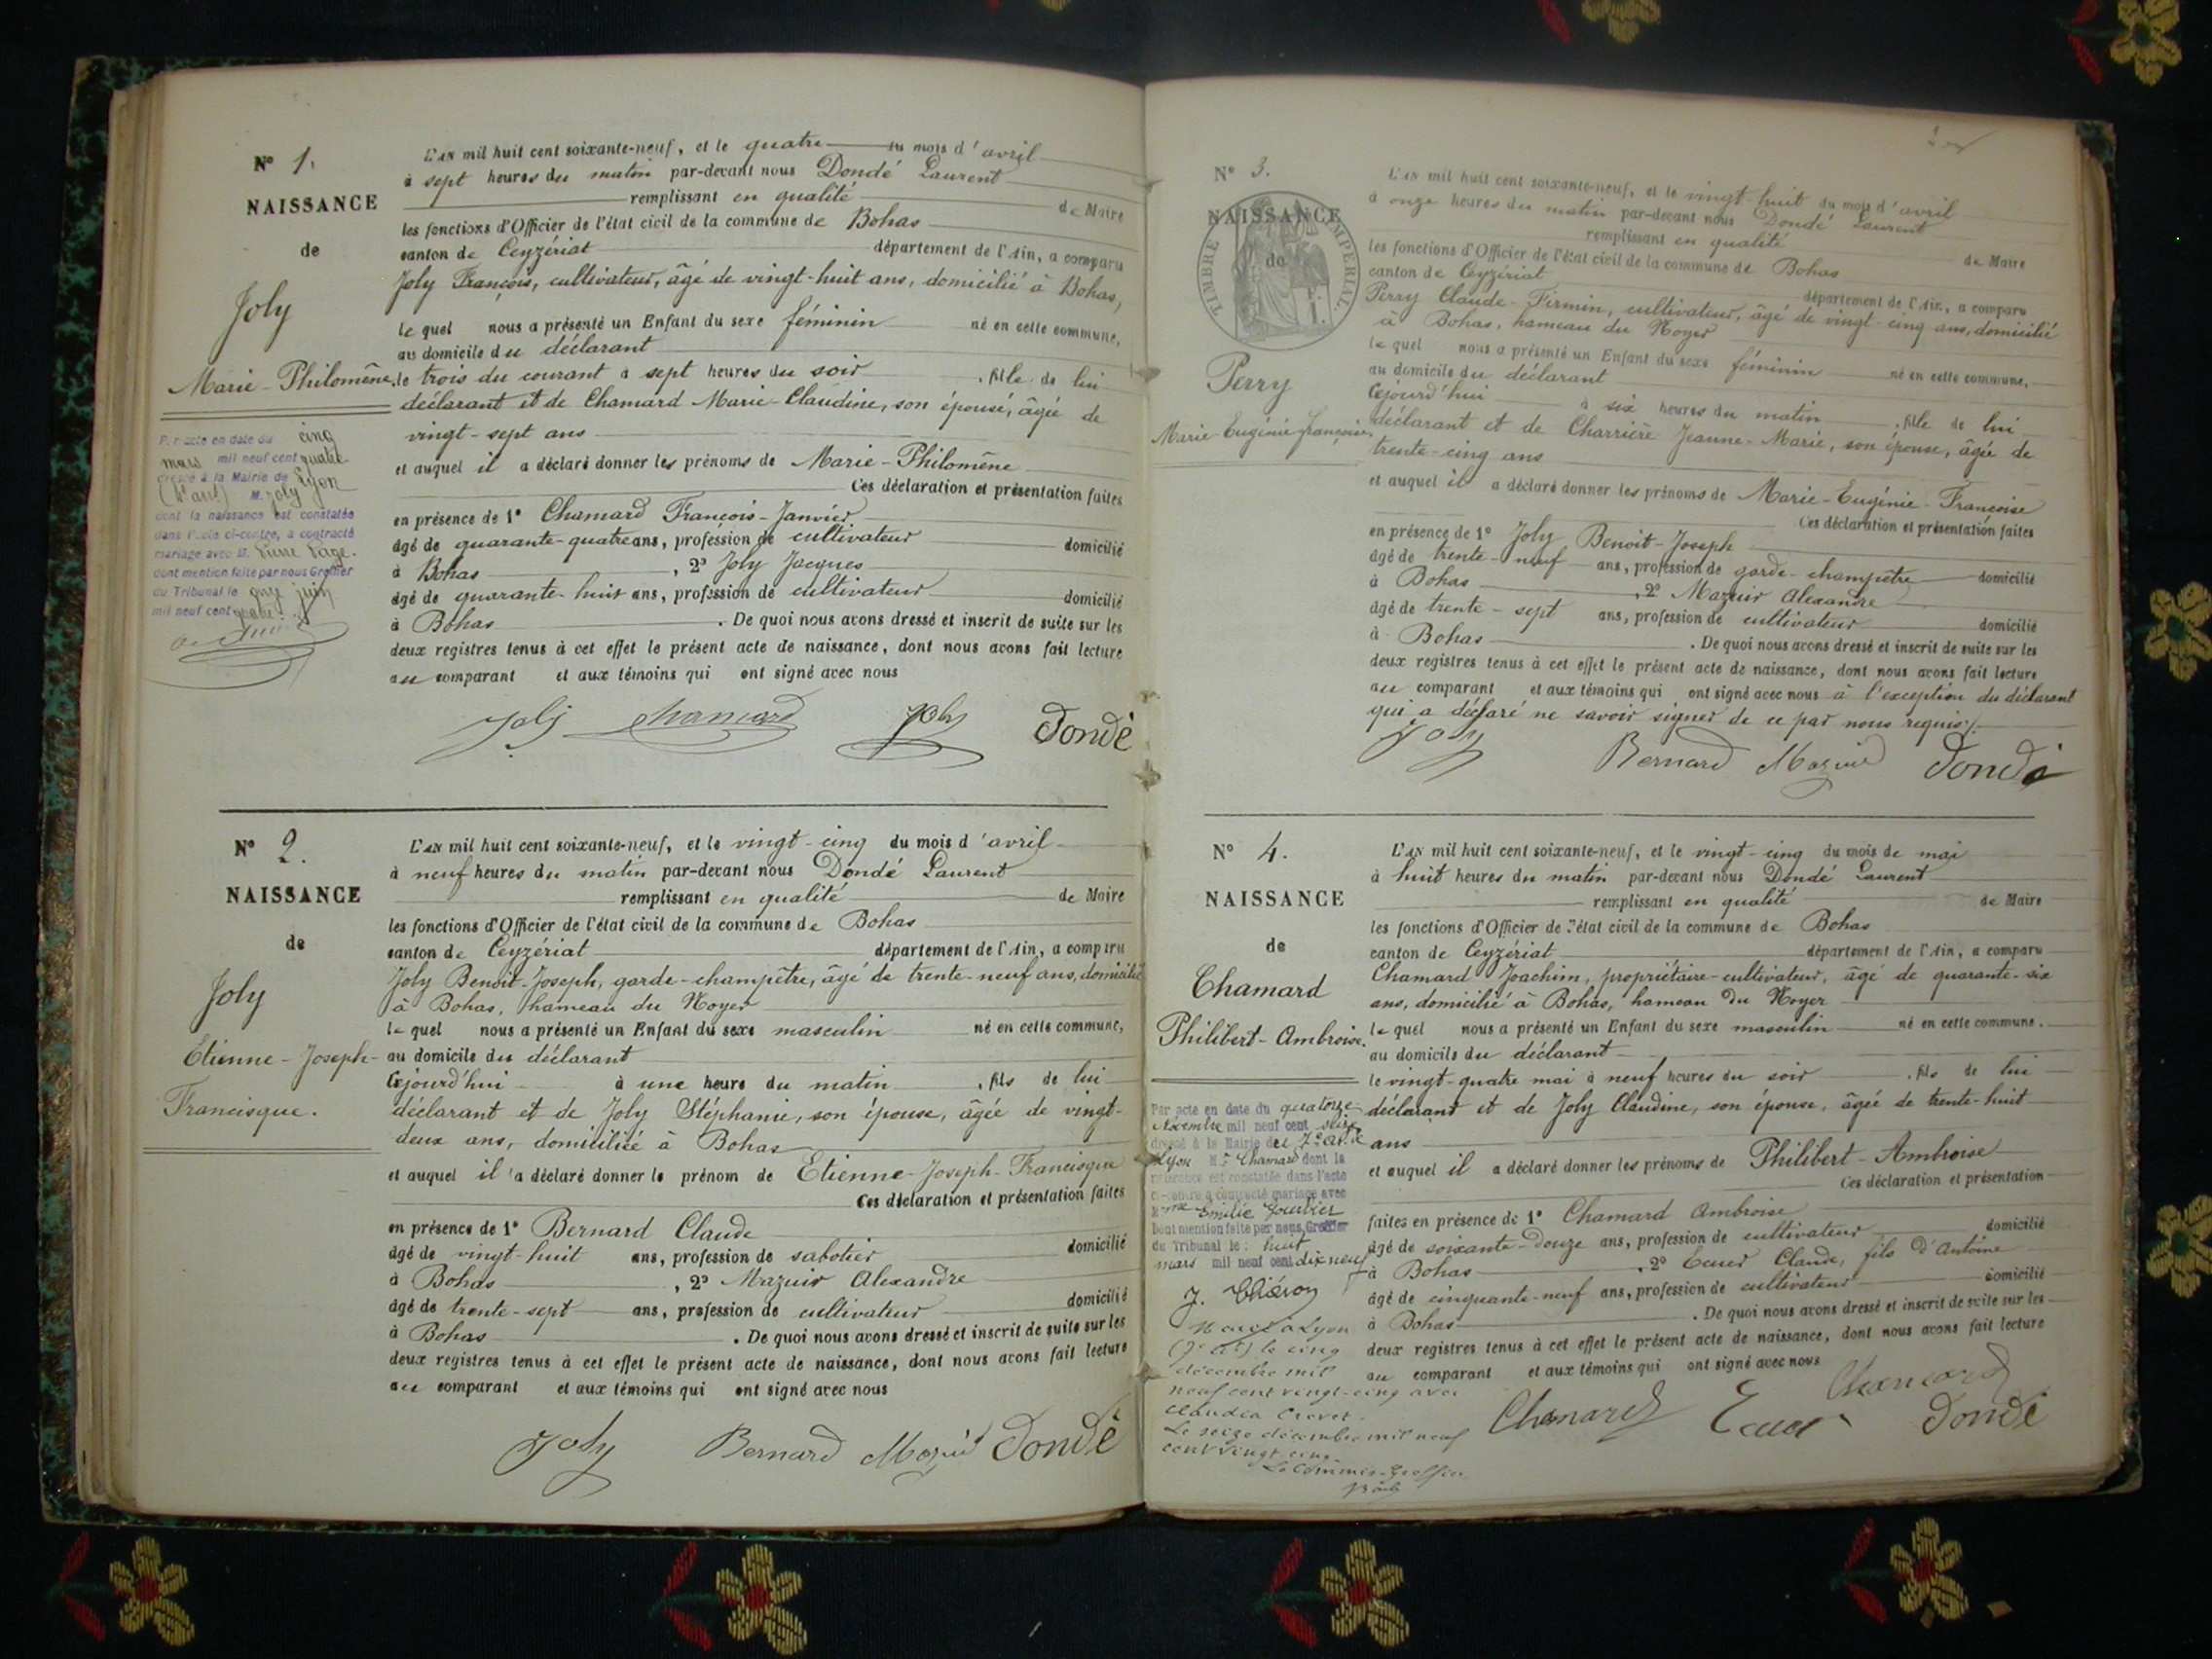 N° 1.
NAISSANCE
de
Joly
Marie-Philomène
Par acte en date du cinq
mars mil neuf cent quatre
dressé à la Mairie de Lyon
M. Joly
dont la naissance est constatée
dans l'acte ci-contre, a contracté
mariage avec M. Pierre
dont mention faite par nous Greffier
du Tribunal le onze juin
mil neuf cent quatre
L'AN mil huit cent soixante-neuf, et le quatre du mois d'avril
à sept heures du matin par-devant nous Dondé Laurent
remplissant en qualité de Maire
les fonctions d'Officier de l'état civil de la commune de Bohas
canton de Ceyzériat département de l'Ain, a comparu
Joly François, cultivateur, âgé de vingt-huit ans, domicilié à Bohas,
le quel nous a présenté un Enfant du sexe féminin né en cette commune,
au domicile du déclarant
le trois du courant à sept heures du soir , fille de lui
déclarant et de Chamard Marie-Claudine, son épouse, âgée de
vingt-sept ans
et auquel il a déclaré donner les prénoms de Marie-Philomène
Ces déclaration et présentation faites
en présence de 1° Chamard François-Janvier
âgé de quarante-quatre ans, profession de cultivateur domicilié
à Bohas , 2° Joly Jacques
âgé de quarante-huit ans, profession de cultivateur domicilié
à Bohas . De quoi nous avons dressé et inscrit de suite sur les
deux registres tenus à cet effet le présent acte de naissance, dont nous avons fait lecture
au comparant et aux témoins qui ont signé avec nous
Joly Chamard Joly Dondé
N° 2.
NAISSANCE
de
Joly
Etienne-Joseph-
Francisque.
L'AN mil huit cent soixante-neuf, et le vingt-cinq du mois d'avril
à neuf heures du matin par-devant nous Dondé Laurent
remplissant en qualité de Maire
les fonctions d'Officier de l'état civil de la commune de Bohas
canton de Ceyzériat département de l'Ain, a comparu
Joly Benoit-Joseph, garde-champêtre, âgé de trente-neuf ans, domicilié
à Bohas, hameau du Noyer
le quel nous a présenté un Enfant du sexe masculin né en cette commune,
au domicile du déclarant
Cejourd'hui à une heure du matin , fils de lui
déclarant et de Joly Stéphanie, son épouse, âgée de vingt-
deux ans, domiciliée à Bohas
et auquel il a déclaré donner le prénom de Etienne-Joseph-Francisque
Ces déclaration et présentation faites
en présence de 1° Bernard Claude
âgé de vingt-huit ans, profession de sabotier domicilié
à Bohas , 2° Mazuir Alexandre
âgé de trente-sept ans, profession de cultivateur domicilié
à Bohas . De quoi nous avons dressé et inscrit de suite sur les
deux registres tenus à cet effet le présent acte de naissance, dont nous avons fait lecture
au comparant et aux témoins qui ont signé avec nous
Joly Bernard Mazuir Dondé
N° 3.
NAISSANCE
de
TIMBRE IMPERIAL
Perry
Marie-Eugénie-Françoise
L'AN mil huit cent soixante-neuf, et le vingt-huit du mois d'avril
à onze heures du matin par-devant nous Dondé Laurent
remplissant en qualité de Maire
les fonctions d'Officier de l'état civil de la commune de Bohas
canton de Ceyzériat département de l'Ain, a comparu
Perry Claude-Firmin, cultivateur, âgé de vingt-cinq ans, domicilié
à Bohas, hameau du Noyer
le quel nous a présenté un Enfant du sexe féminin né en cette commune,
au domicile du déclarant
Cejourd'hui à six heures du matin , fille de lui
déclarant et de Charrière Jeanne-Marie, son épouse, âgée de
trente-cinq ans
et auquel il a déclaré donner les prénoms de Marie-Eugénie-Françoise
Ces déclaration et présentation faites
en présence de 1° Joly Benoit-Joseph
âgé de trente-neuf ans, profession de garde-champêtre domicilié
à Bohas , 2° Mazuir Alexandre
âgé de trente-sept ans, profession de cultivateur domicilié
à Bohas . De quoi nous avons dressé et inscrit de suite sur les
deux registres tenus à cet effet le présent acte de naissance, dont nous avons fait lecture
au comparant et aux témoins qui ont signé avec nous à l'exception du déclarant
qui a déclaré ne savoir signer de ce par nous requis
Joly Bernard Mazuir Dondé
N° 4.
NAISSANCE
de
Chamard
Philibert-Ambroise.
Par acte en date du quatorze
Novembre mil neuf cent seize
dressé à la Mairie du 7e Ar. de
Lyon Mr Chamard dont la
naissance est constatée dans l'acte
ci-contre a contracté mariage avec
Mme Emilie
Dont mention faite par nous Greffier
du Tribunal le: huit
mars mil neuf cent dix neuf
Marié à Lyon
le cinq
décembre mil
neuf cent vingt-cinq avec
Claudia
Le seize décembre mil neuf
cent vingt cinq
Le Commis-Greffier
L'AN mil huit cent soixante-neuf, et le vingt-cinq du mois de mai
à huit heures du matin par-devant nous Dondé Laurent
remplissant en qualité de Maire
les fonctions d'Officier de l'état civil de la commune de Bohas
canton de Ceyzériat département de l'Ain, a comparu
Chamard Joachim, propriétaire-cultivateur, âgé de quarante-six
ans, domicilié à Bohas, hameau du Noyer
le quel nous a présenté un Enfant du sexe masculin né en cette commune.
au domicile du déclarant
le vingt-quatre mai à neuf heures du soir , fils de lui
déclarant et de Joly Claudine, son épouse, âgée de trente-huit
ans
et auquel il a déclaré donner les prénoms de Philibert-Ambroise
Ces déclaration et présentation
faites en présence de 1° Chamard Ambroise
âgé de soixante-douze ans, profession de cultivateur domicilié
à Bohas , 2° Claude, fils d'Antoine
âgé de cinquante-neuf ans, profession de cultivateur domicilié
à Bohas . De quoi nous avons dressé et inscrit de suite sur les
deux registres tenus à cet effet le présent acte de naissance, dont nous avons fait lecture
au comparant et aux témoins qui ont signé avec nous
Chamard Chamard Dondé